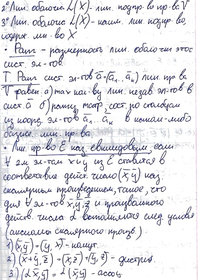 2° Лин. оболочка L(X) - лин. подпр-во пр-ва V
3° Лин. оболочка L(X) - наим. лин. подпр-во,
содерж. мн-во X
• Ранг - размерность лин. оболочки этой
сист. эл-тов
T Ранг сист. эл-тов a̅(a̅₁..a̅ₙ) лин. пр-ва
V равен а) макс. кол-ву лин. незав. эл-тов в
сист. a̅ б) рангу матр., сост. по столбцам
из коорд. эл-тов a̅₁..a̅ₙ в каком-либо
базисе лин. пр-ва
• Лин. пр-во E наз. евклидовым, если
∀ 2м эл-там x̅ и y̅ из E ставится в
соответствие действ. число (x̅, y̅) наз.
скалярным произведением, такое, что
для ∀ эл-тов x̅, y̅, z̅ и произвольного
действ. числа α выполняются след. условия
(аксиомы скалярного произв.)
1) (x̅, y̅) = (y̅, x̅) - коммут.
2) (x̅ + y̅, z̅) = (x̅, z̅) + (y̅, z̅) - дистриб.
3) (αx̅, y̅) = α(x̅, y̅) - ассоц.